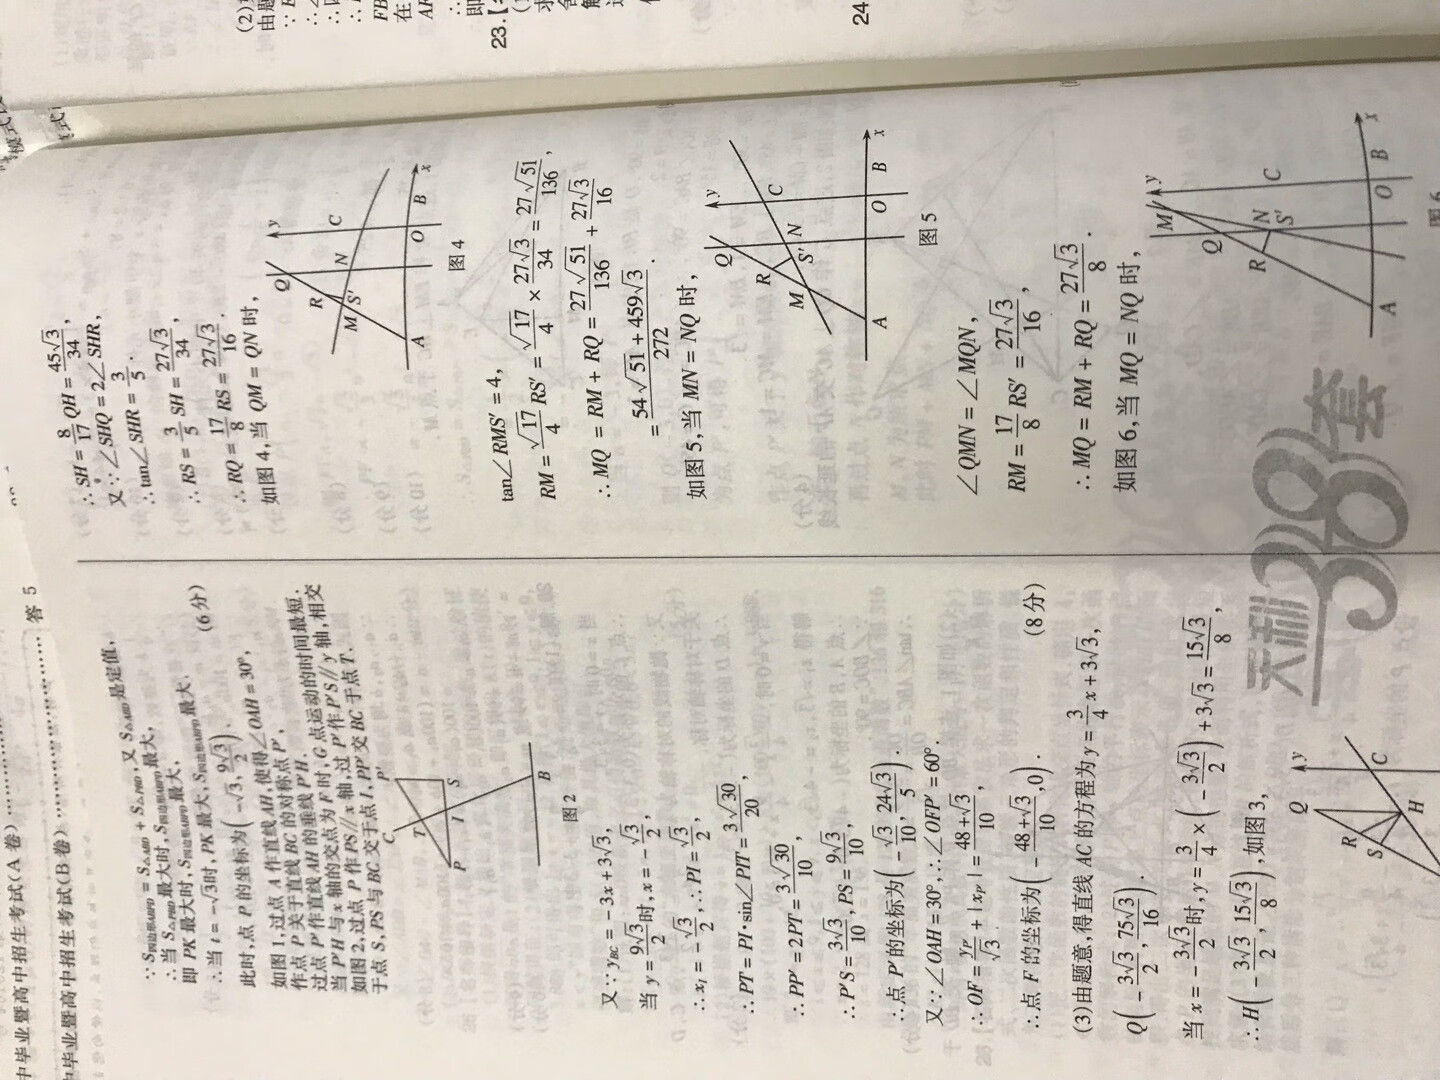 中毕业暨高中招生考试(A 卷)
中毕业暨高中招生考试(B 卷)
答 5
∵S四边形ABPD = S△ABD + S△PBD,又 S△ABD是定值,
∴当 S△PBD最大时,S四边形ABPD最大,
即 PK 最大时,S四边形ABPD最大.
∴当 t = -√3时,PK 最大,S四边形ABPD最大.
此时,点 P 的坐标为(-√3, 9√3/2). (6 分)
如图 1,过点 A 作直线 AH,使得∠OAH = 30°,
作点 P 关于直线 BC 的对称点 P′,
过点 P′作直线 AH 的垂线 P′H.
当 P′H 与 x 轴的交点为 F 时,G 点运动的时间最短.
如图 2,过点 P 作 PS∥x 轴,过 P′作 P′S∥y 轴,相交
于点 S,PS 与 BC 交于点 I,PP′交 BC 于点 T.
C P′
T
P I S
B
图 2
又∵y_BC = -3x + 3√3,
当 y = 9√3/2时,x = -√3/2,
∴x_I = -√3/2,∴PI = √3/2,
∴PT = PI·sin∠PIT = 3√30/20,
∴PP′ = 2PT = 3√30/10,
∴P′S = 3√3/10,PS = 9√3/10,
∴点 P′的坐标为(-√3/10, 24√3/5).
又∵∠OAH = 30°,∴∠OFP′ = 60°.
∴OF = y_P′/√3 + |x_P′| = (48+√3)/10,
∴点 F 的坐标为(-(48+√3)/10,0). (8 分)
(3)由题意,得直线 AC 的方程为 y = 3/4 x + 3√3,
Q(-3√3/2, 75√3/16).
当 x = -3√3/2时,y = 3/4 × (-3√3/2) + 3√3 = 15√3/8,
∴H(-3√3/2, 15√3/8),如图 3,
y
Q
R
S
C
H
∴SH = 8/17 QH = 45√3/34,
又∵∠SHQ = 2∠SHR,
∴tan∠SHR = 3/5.
∴RS = 3/5 SH = 27√3/34,
∴RQ = 17/8 RS = 27√3/16.
如图 4,当 QM = QN 时,
Q y
R
M S′ N C
A O B x
图 4
tan∠RMS′ = 4,
RM = √17/4 RS′ = √17/4 × 27√3/34 = 27√51/136,
∴MQ = RM + RQ = 27√51/136 + 27√3/16
= (54√51 + 459√3)/272.
如图 5,当 MN = NQ 时,
Q y
R
M S′ N C
A O B x
图 5
∠QMN = ∠MQN,
RM = 17/8 RS′ = 27√3/16,
∴MQ = RM + RQ = 27√3/8.
如图 6,当 MQ = NQ 时,
M y
Q
R N
S′ C
A O B x
图 6
天利38套
(2)
由题
23.【
24